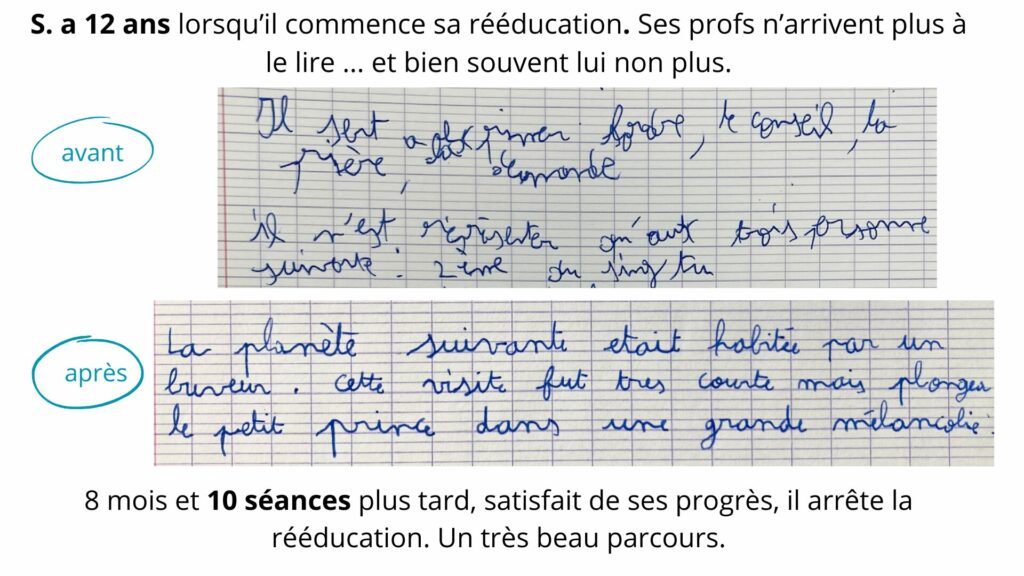 S. a 12 ans lorsqu'il commence sa rééducation. Ses profs n'arrivent plus à
le lire ... et bien souvent lui non plus.
avant
Il sert a primer l'ordre, le conseil, la
prière, la demande
il n'est représenter qu'aux trois personne
suivante : 2ème du sing tu
après
La planète suivante etait habitée par un
buveur. Cette visite fut tres courte mais plongea
le petit prince dans une grande mélancolie.
8 mois et 10 séances plus tard, satisfait de ses progrès, il arrête la
rééducation. Un très beau parcours.